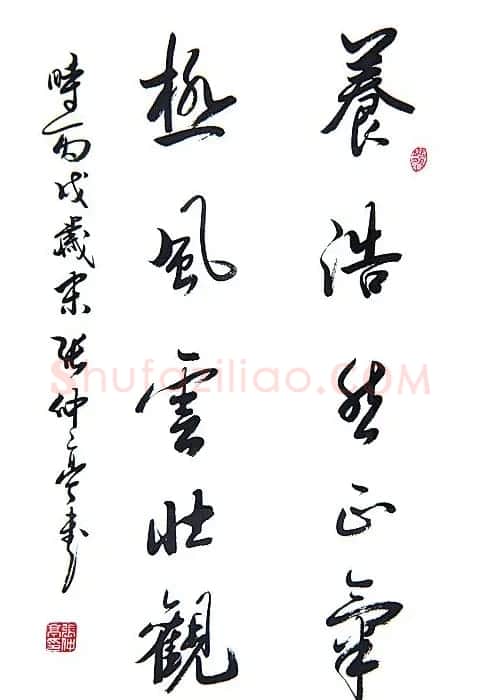 養浩然正氣
極風雲壯觀
時丙戌歲末張仲亭書
張仲亭印
Shufaziliao.COM